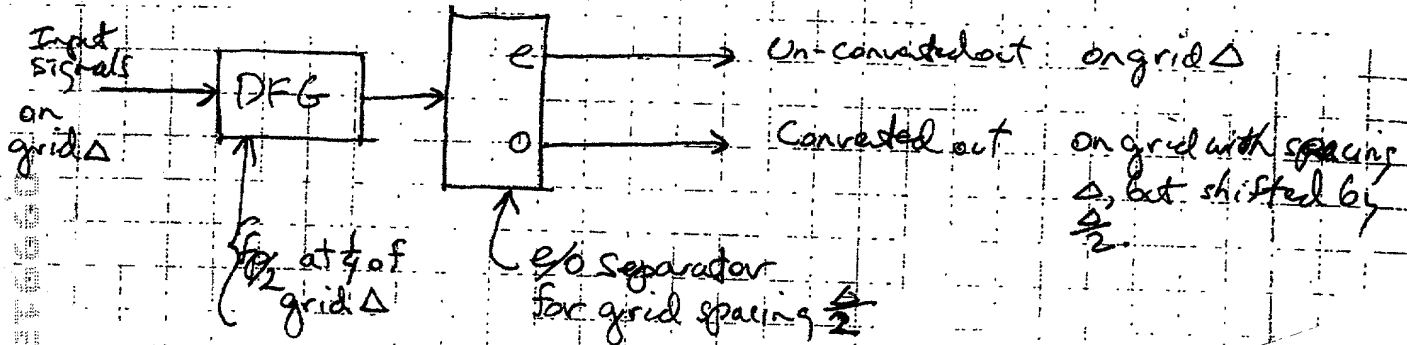 Input
signals
on
grid Δ
DFG
e
o
Un-converted out on grid Δ
Converted out on grid with spacing
Δ, but shifted by
Δ/2.
fp/2 at 1/4 of
grid Δ
e/o separator
for grid spacing Δ/2